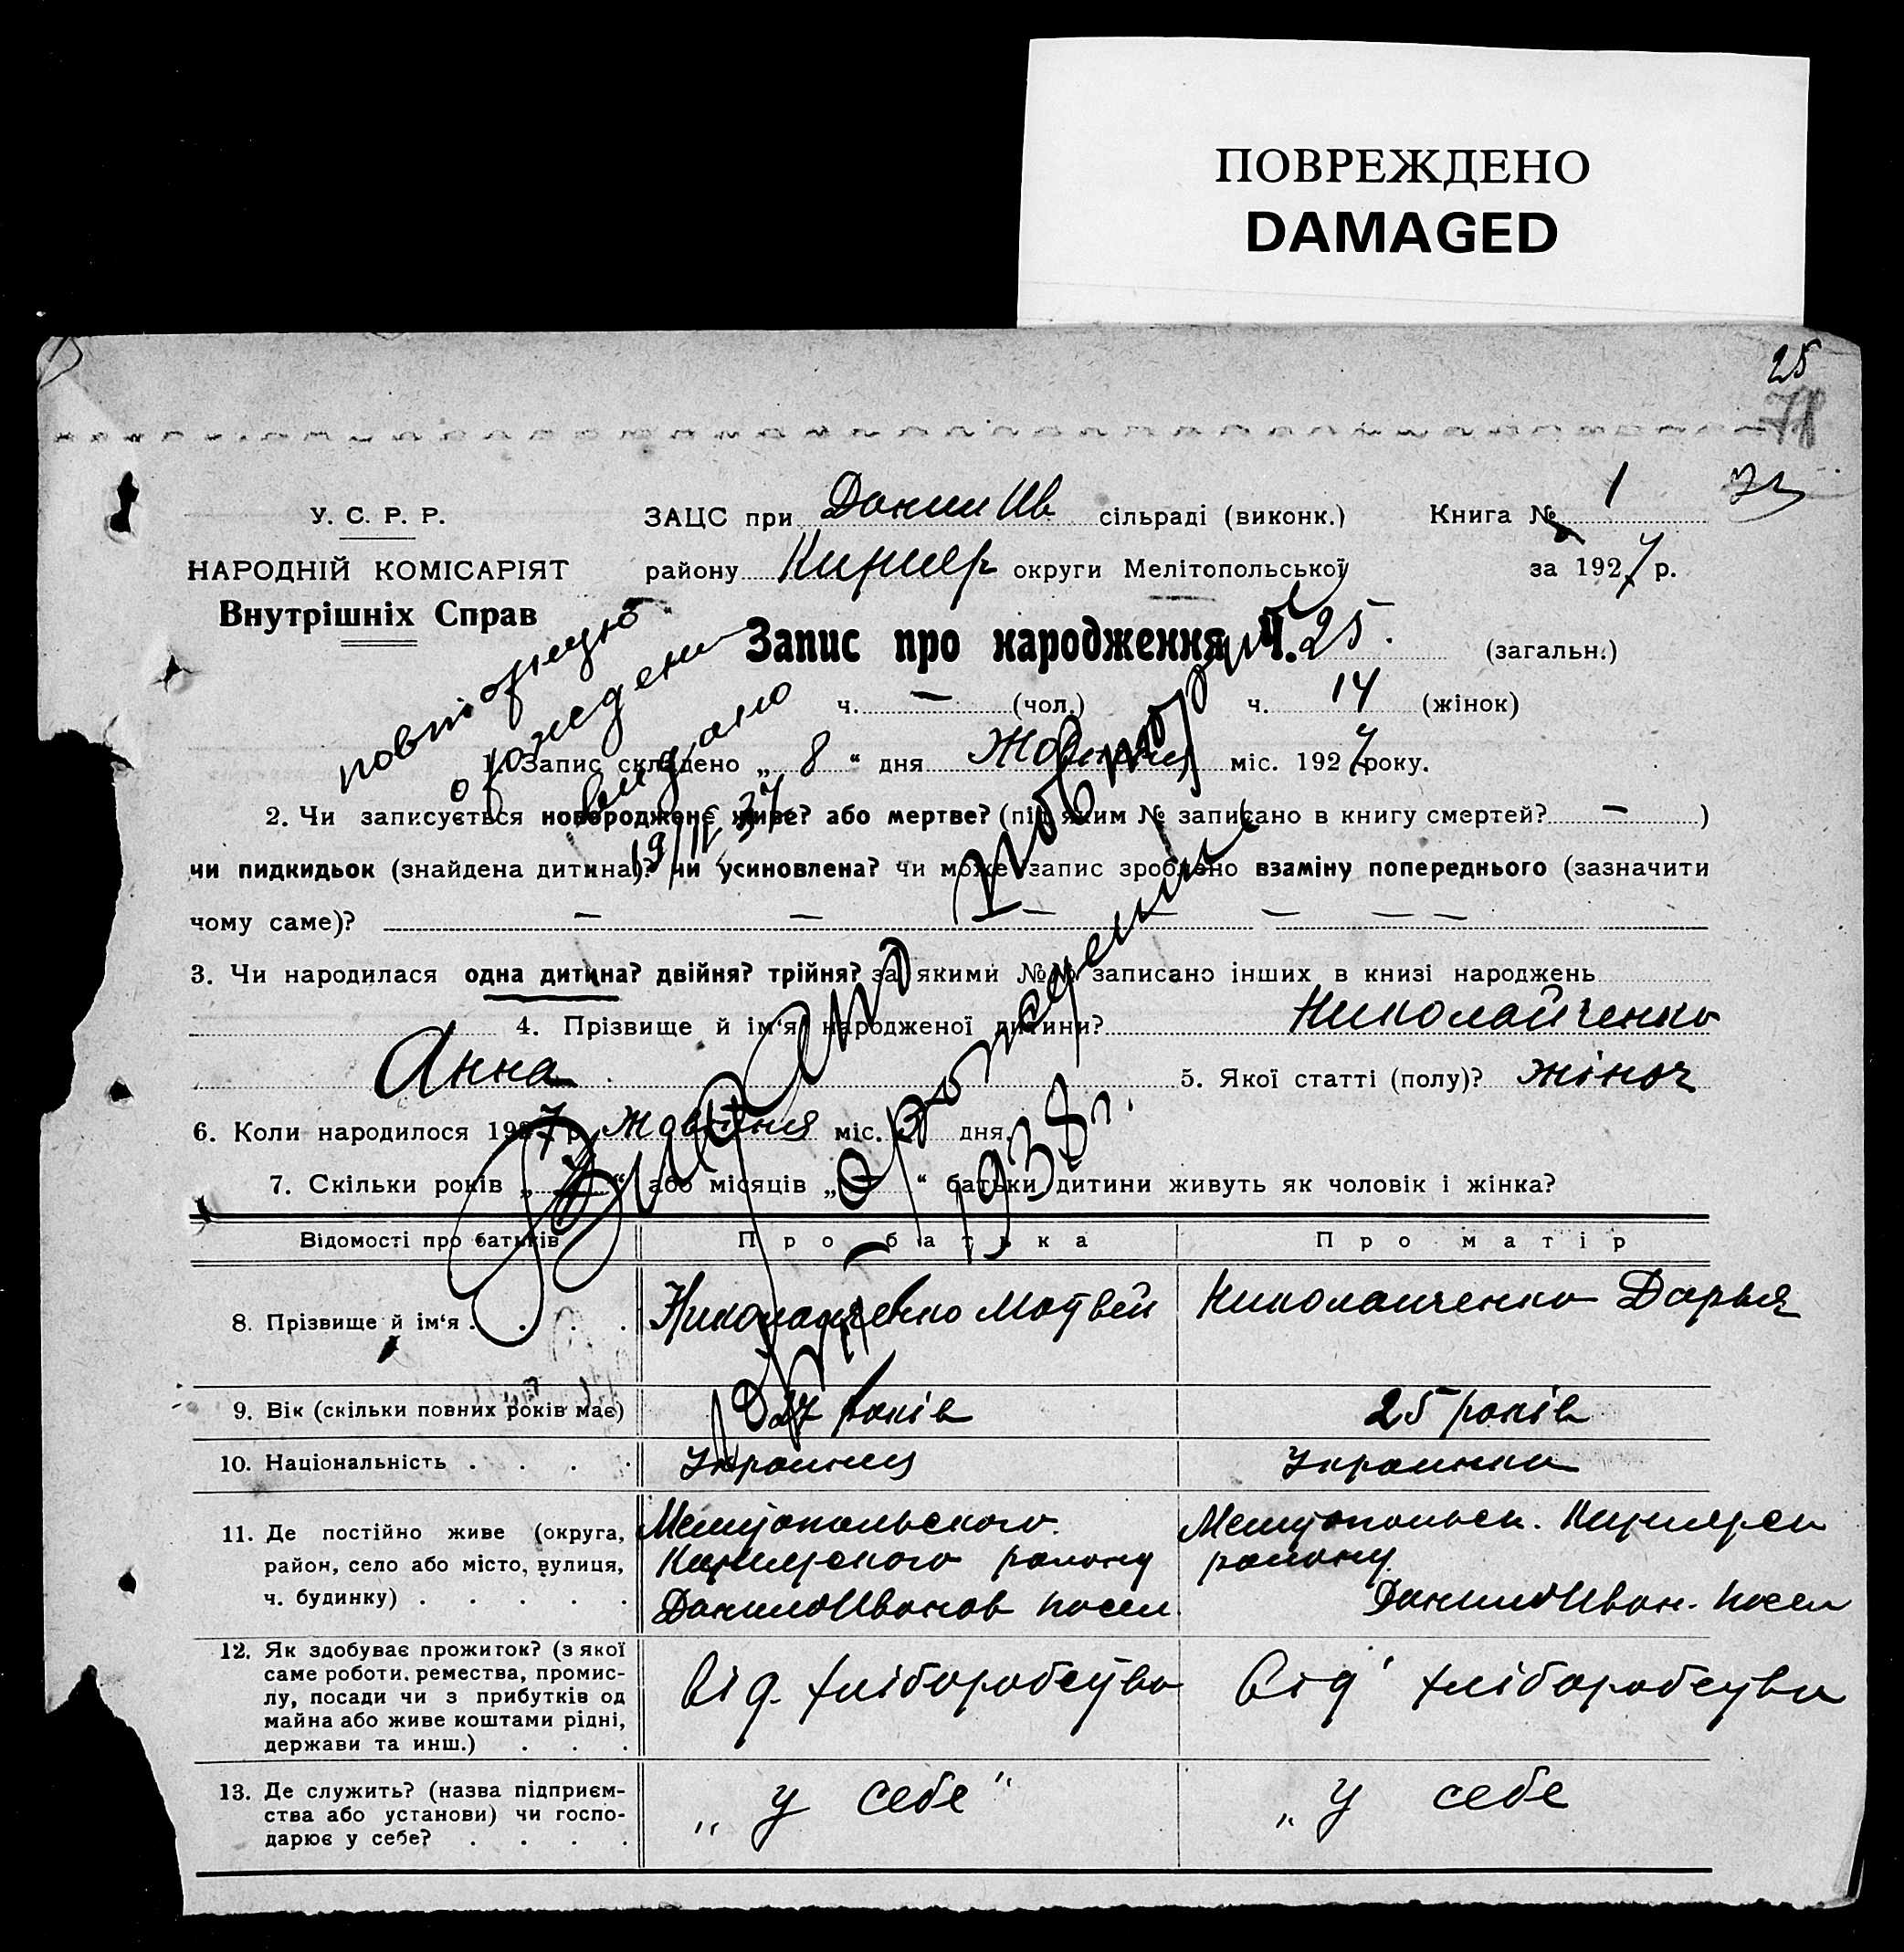 ПОВРЕЖДЕНО
DAMAGED
25
У. С. Р. Р.
НАРОДНІЙ КОМІСАРІЯТ
Внутрішніх Справ
ЗАЦС при Данил Ив сільраді (виконк.) Книга № 1
району округи Мелітопольської за 1927 р.
Запис про народження Ч. 25. (загальн.)
ч. — (чол.) ч. 14 (жінок)
повторную
о рождении
видано
1. Запис складено „ 8 “ дня Жовтня міс. 1927 року.
2. Чи записується новороджене живе? або мертве? (під яким № записано в книгу смертей? — )
чи пидкидьок (знайдена дитина)? чи усиновлена? чи може запис зроблено взаміну попереднього (зазначити
чому саме)? — — — — — — —
3. Чи народилася одна дитина? двійня? трійня? за якими №№ записано інших в книзі народжень
4. Прізвище й ім‘я народженої дитини? Николайченко
Анна 5. Якої статті (полу)? жіноч
6. Коли народилося 1927 р. Жовтня міс. 3 дня.
7. Скільки років „ “ або місяців „ “ батьки дитини живуть як чоловік і жінка?
Видано повторное
о рождении
1938 г.
Відомості про батьків Про батька Про матір
8. Прізвище й ім‘я . . . . Николайченко Матвей Николайченко Дарья
9. Вік (скільки повних років має) 27 років 25 років
10. Національність . . . . Украинец Украинка
11. Де постійно живе (округа,
район, село або місто, вулиця,
ч. будинку) . . . . .
Мелитопольского
району
ДанилоИванов посел.
Мелитопольск.
району
ДанилоИван. посел
12. Як здобуває прожиток? (з якої
саме роботи, ремества, промис-
лу, посади чи з прибутків од
майна або живе коштами рідні,
держави та инш.) . . .
від хліборобства від хліборобства
13. Де служить? (назва підприєм-
ства або установи) чи госпо-
дарює у себе? . . . .
„ у себе “ „ у себе